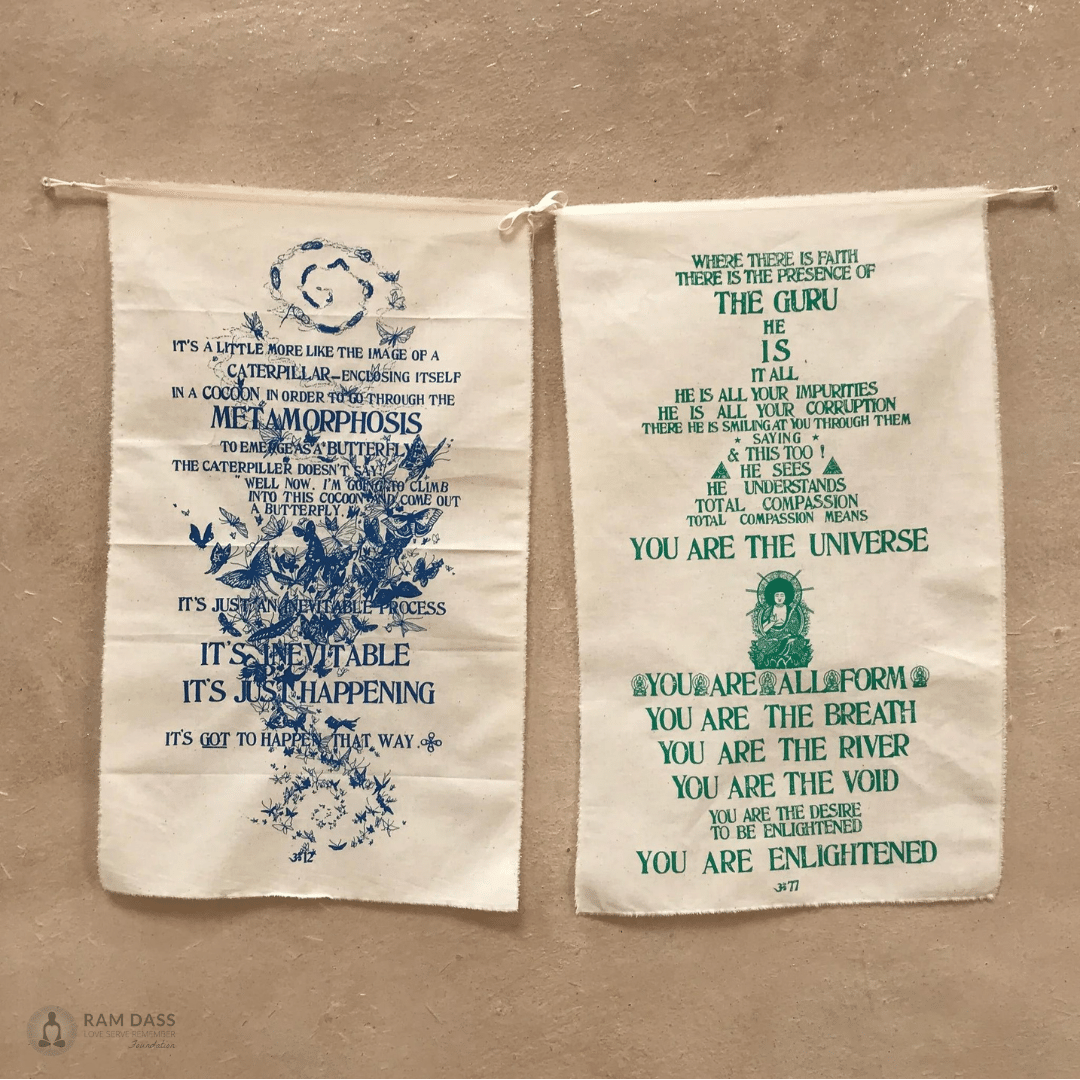 IT'S A LITTLE MORE LIKE THE IMAGE OF A
CATERPILLAR—ENCLOSING ITSELF
IN A COCOON IN ORDER TO GO THROUGH THE
METAMORPHOSIS
TO EMERGE AS A BUTTERFLY.
THE CATERPILLER DOESN'T SAY:
"WELL NOW. I'M GOING TO CLIMB
INTO THIS COCOON AND COME OUT
A BUTTERFLY.
IT'S JUST AN INEVITABLE PROCESS
IT'S INEVITABLE
IT'S JUST HAPPENING
IT'S GOT TO HAPPEN THAT WAY.
ॐ 12
WHERE THERE IS FAITH
THERE IS THE PRESENCE OF
THE GURU
HE
IS
IT ALL
HE IS ALL YOUR IMPURITIES
HE IS ALL YOUR CORRUPTION
THERE HE IS SMILING AT YOU THROUGH THEM
* SAYING *
& THIS TOO !
HE SEES
HE UNDERSTANDS
TOTAL COMPASSION
TOTAL COMPASSION MEANS
YOU ARE THE UNIVERSE
YOU ARE ALL FORM
YOU ARE THE BREATH
YOU ARE THE RIVER
YOU ARE THE VOID
YOU ARE THE DESIRE
TO BE ENLIGHTENED
YOU ARE ENLIGHTENED
ॐ 77
RAM DASS
LOVE SERVE REMEMBER
Foundation